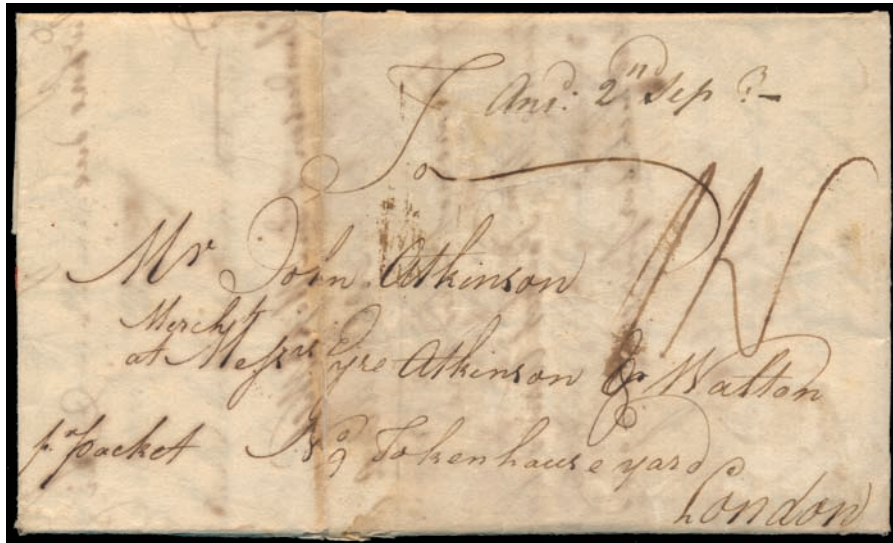 Ansd: 2nd Sepr
To
Mr John Atkinson
Mercht
at Messrs Eyre Atkinson & Walton
p. Packet No 9 Tokenhouse yard
London